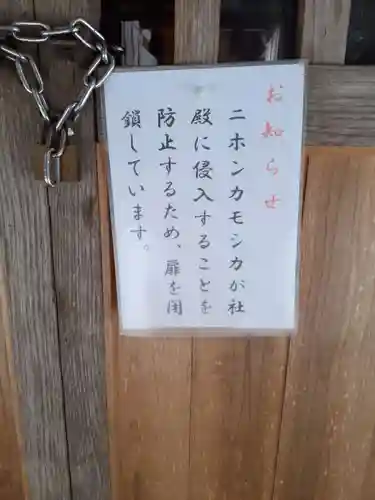 お知らせ
ニホンカモシカが社
殿に侵入することを
防止するため、扉を閉
鎖しています。